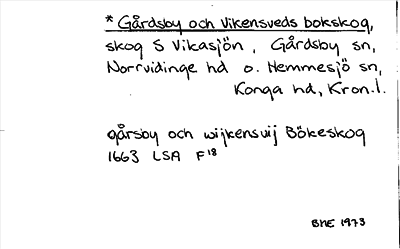 * Gårdsby och Vikensveds bokskog,
skog S Vikasjön, Gårdsby sn,
Norrvidinge hd o. Hemmesjö sn,
Konga hd, Kron.l.
gårsby och wijkensvij Bökeskog
1663 LSA F18
BME 1973